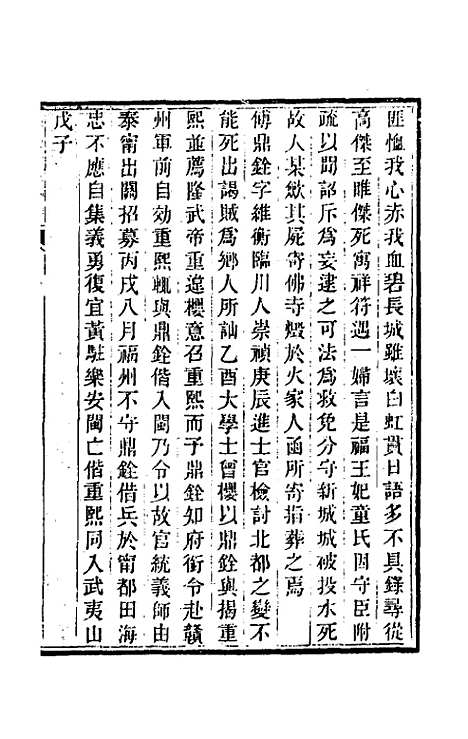 匪愧我心亦我血碧長城雖壞白虹貫日語多不具錄尋從
高傑至睢傑死寓祥符遇一婦言是福王妃童氏因守臣附
疏以聞詔斥爲妄逮之可法爲救免分守新城城被投水死
故人某歛其屍寄佛寺燬於火家人函所寄指葬之焉
傅鼎銓字維衡臨川人崇禎庚辰進士官檢討北都之變不
能死出謁賊爲鄉人所訕乙酉大學士曾櫻以鼎銓與揭重
熙並薦隆武帝重違櫻意召重熙而予鼎銓知府銜令赴贛
州軍前自効重熙輒與鼎銓偕入閩乃令以故官統義師由
泰甯出關招募丙戌八月福州不守鼎銓借兵於甯都田海
忠不應自集義勇復宜黃駐樂安閩亡偕重熙同入武夷山
戊子